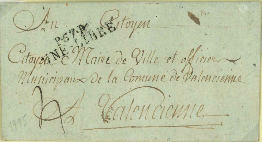 Au Citoyen
P.57.P.
ANE-LIBRE
Citoyen Maire de Ville et officier
Municipaux de la Comune de Valencienne
Valencienne